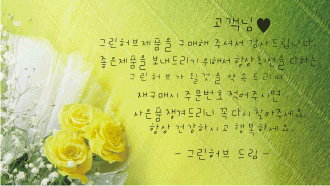 고객님♥
그린허브제품을 구매해 주셔서 감사드립니다.
좋은제품을 보내드리기 위해서 항상 최선을 다하는
그린허브가 될것을 약속드리며
재구매시 주문번호 적어주시면
사은품 챙겨드리니 꼭 다시 찾아주세요.
항상 건강하시고 행복하세요.
- 그린허브 드림 -